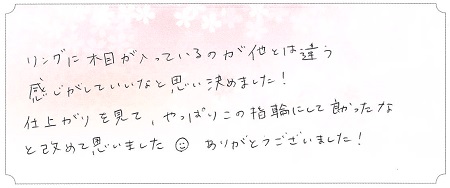 リングに木目が入っているのが他とは違う
感じがしていいなと思い決めました！
仕上がりを見て、やっぱりこの指輪にして良かったな
と改めて思いました☺ ありがとうございました！